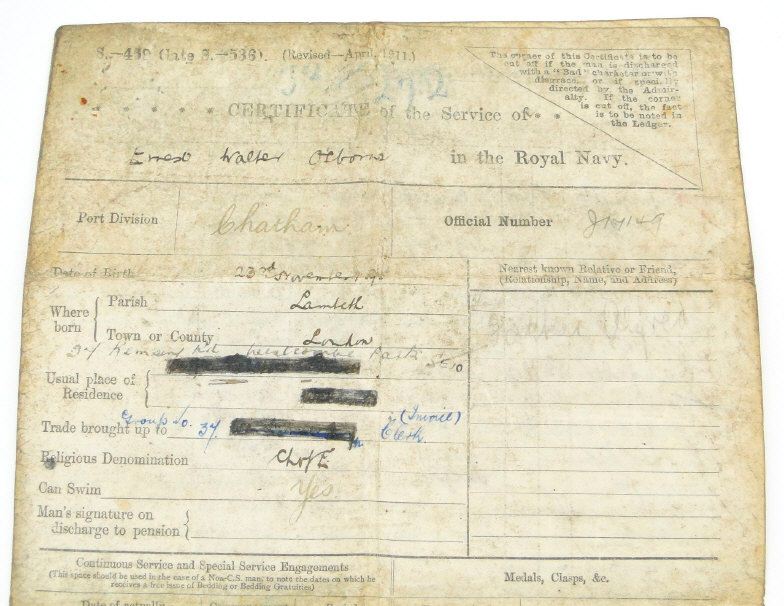 S.—459 (late S.—536). (Revised—April, 1911.)
The corner of this Certificate is to be
cut off if the man is discharged
with a "Bad" character or with
disgrace, or if specially
directed by the Admir-
alty. If the corner
is cut off, the fact
is to be noted in
the Ledger.
CERTIFICATE of the Service of
Ernest Walter Osborne in the Royal Navy.
Port Division Chatham Official Number
Date of Birth 23rd November
Nearest known Relative or Friend,
(Relationship, Name, and Address)
Where born { Parish Lambeth
Town or County London
Park SE10
Usual place of
Residence {
Group No. 37 (Invoice)
Trade brought up to Clerk
Religious Denomination Ch of E
Can Swim Yes
Man's signature on
discharge to pension }
Continuous Service and Special Service Engagements
(This space should be used in the case of a Non-C.S. man, to note the dates on which he
receives a free issue of Bedding or Bedding Gratuities)
Medals, Clasps, &c.
Date of actually